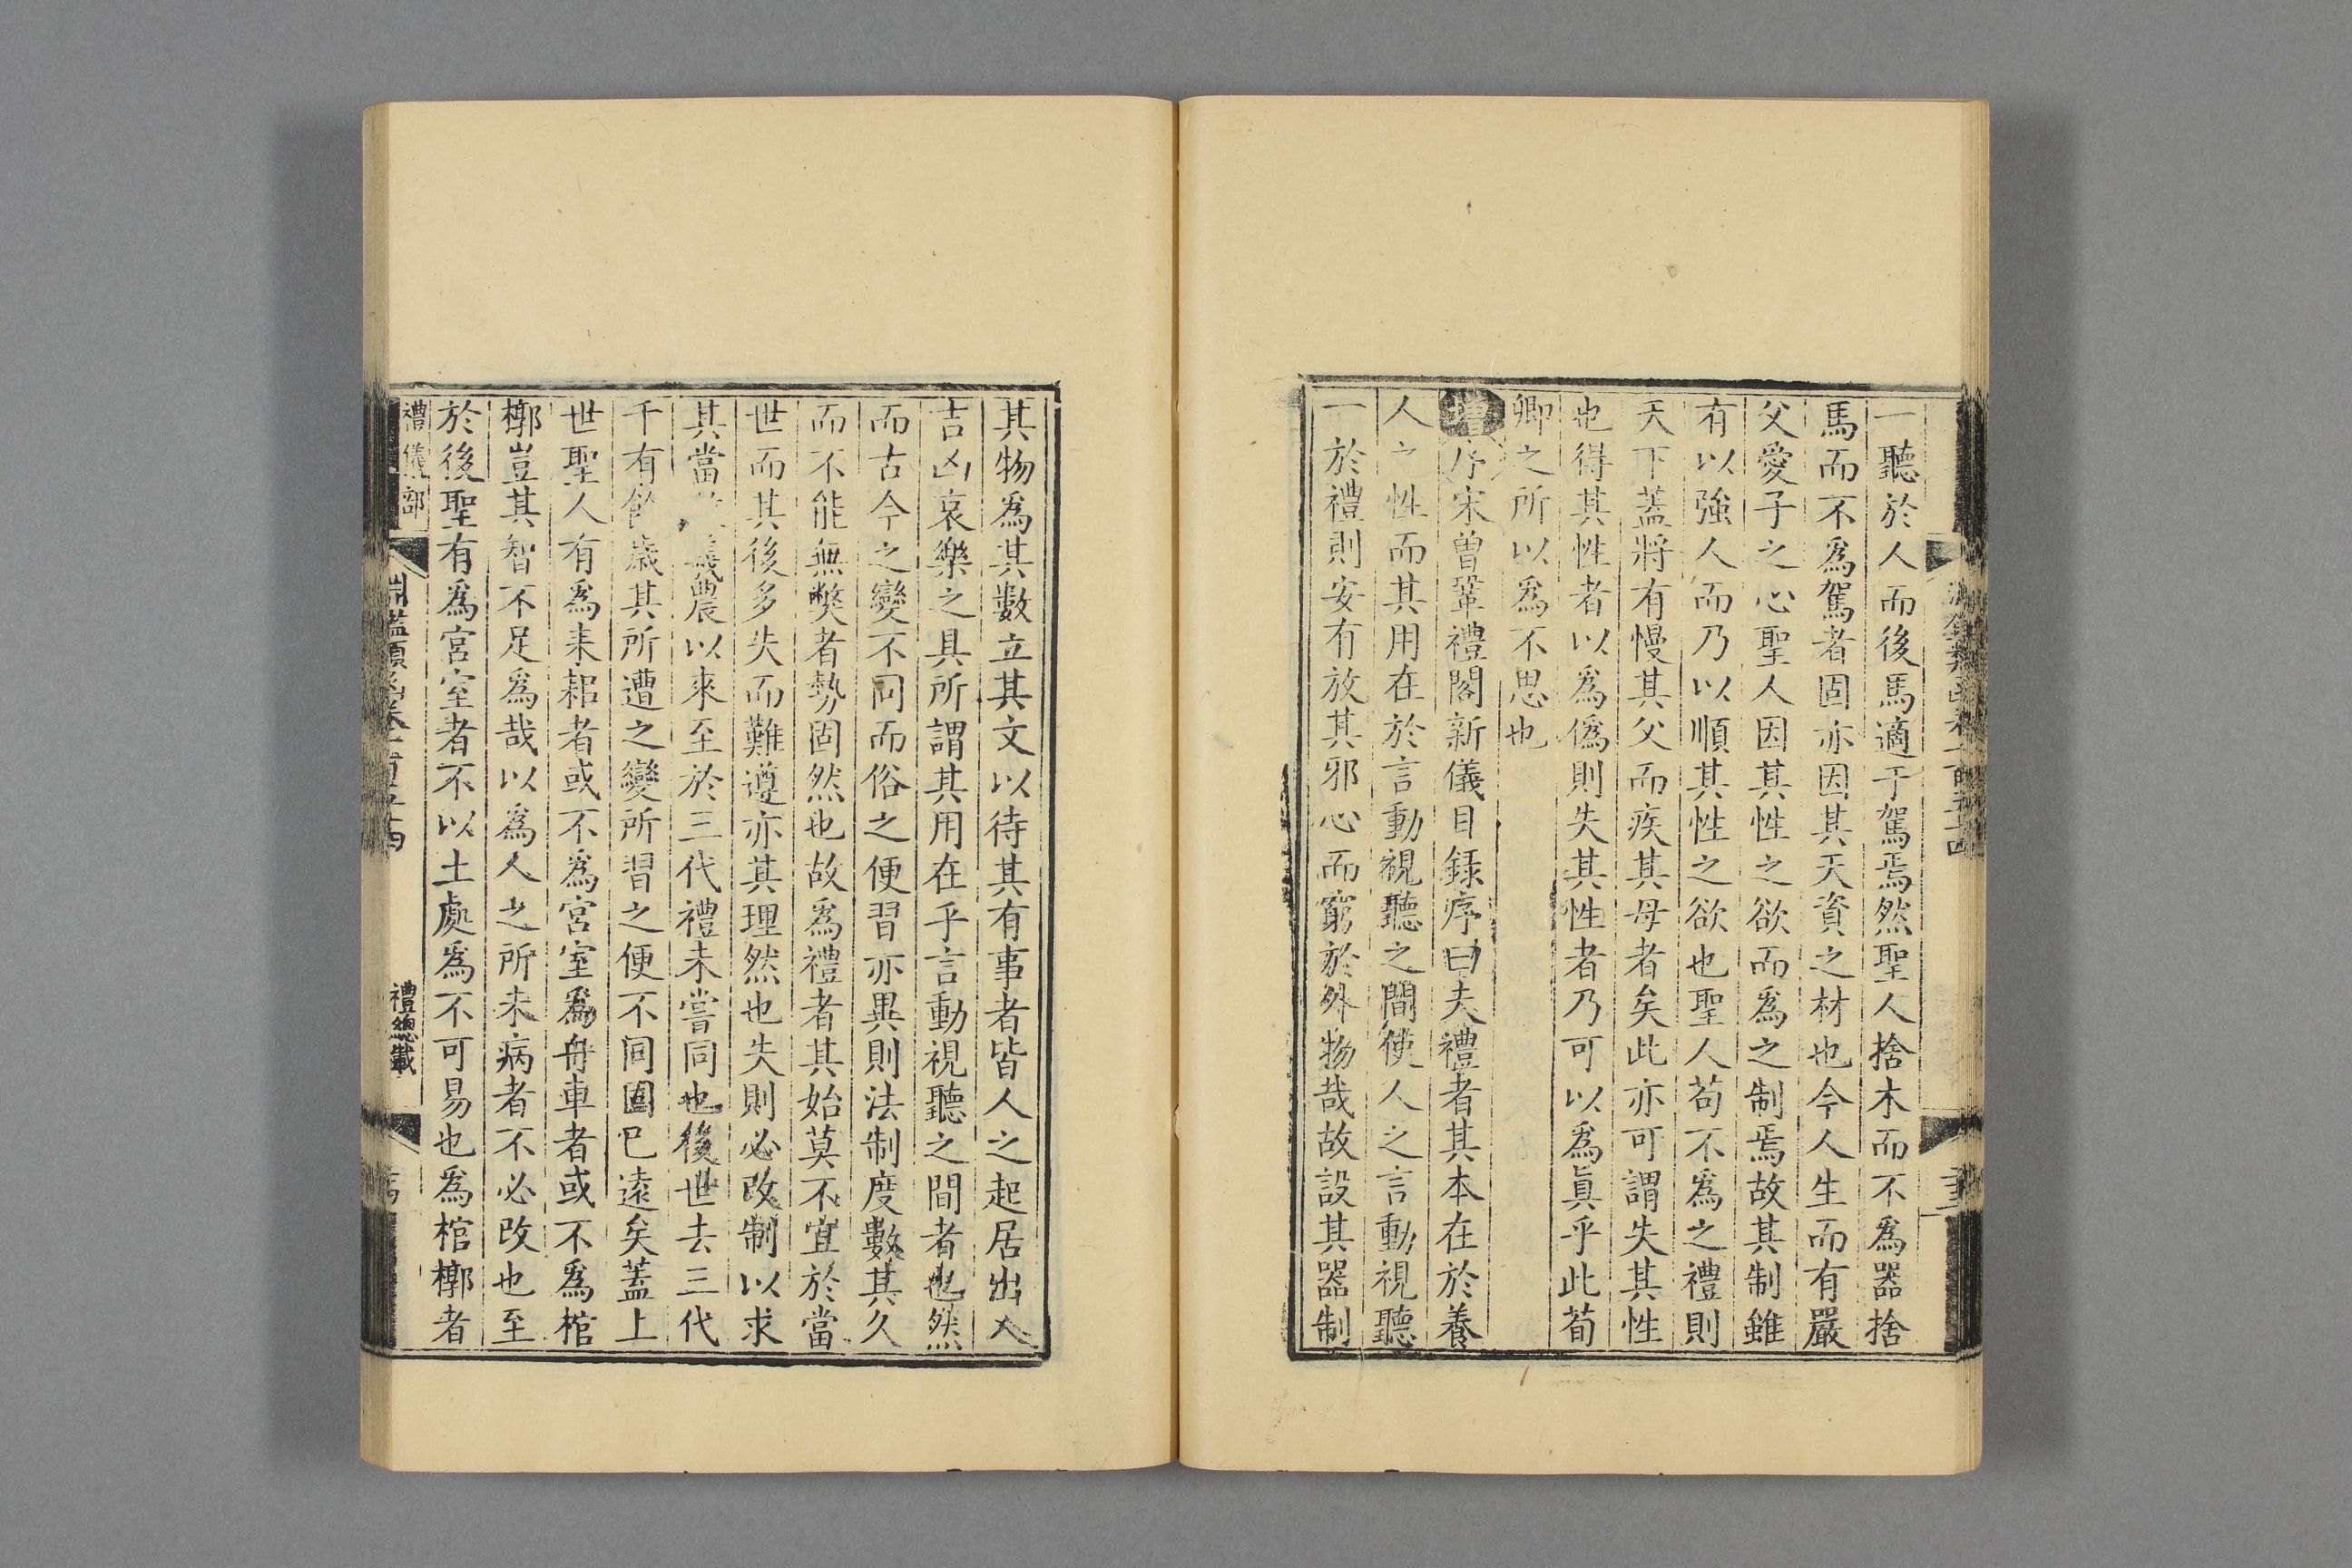 一聽於人而後馬適于駕焉然聖人捨木而不爲器捨
馬而不爲駕者固亦因其天資之材也今人生而有嚴
父愛子之心聖人因其性之欲而爲之制焉故其制雖
有以強人而乃以順其性之欲也聖人苟不爲之禮則
天下蓋將有慢其父而疾其母者矣此亦可謂失其性
也得其性者以爲僞則失其性者乃可以爲眞乎此荀
卿之所以爲不思也
增序宋曾鞏禮閣新儀目錄序曰夫禮者其本在於養
人之性而其用在於言動視聽之間使人之言動視聽
一於禮則安有放其邪心而窮於外物哉故設其器制
其物爲其數立其文以待其有事者皆人之起居出入
吉凶哀樂之具所謂其用在乎言動視聽之間者也然
而古今之變不同而俗之便習亦異則法制度數其久
而不能無獘者勢固然也故爲禮者其始莫不宜於當
世而其後多失而難遵亦其理然也失則必改制以求
其當羲農以來至於三代禮未嘗同也後世去三代
千有餘歲其所遭之變所習之便不同固已遠矣蓋上
世聖人有爲耒耜者或不爲宮室爲舟車者或不爲棺
槨豈其智不足爲哉以爲人之所未病者不必改也至
於後聖有爲宮室者不以土處爲不可易也爲棺槨者
禮儀部
淵鑑類函卷一百五十四
禮總載